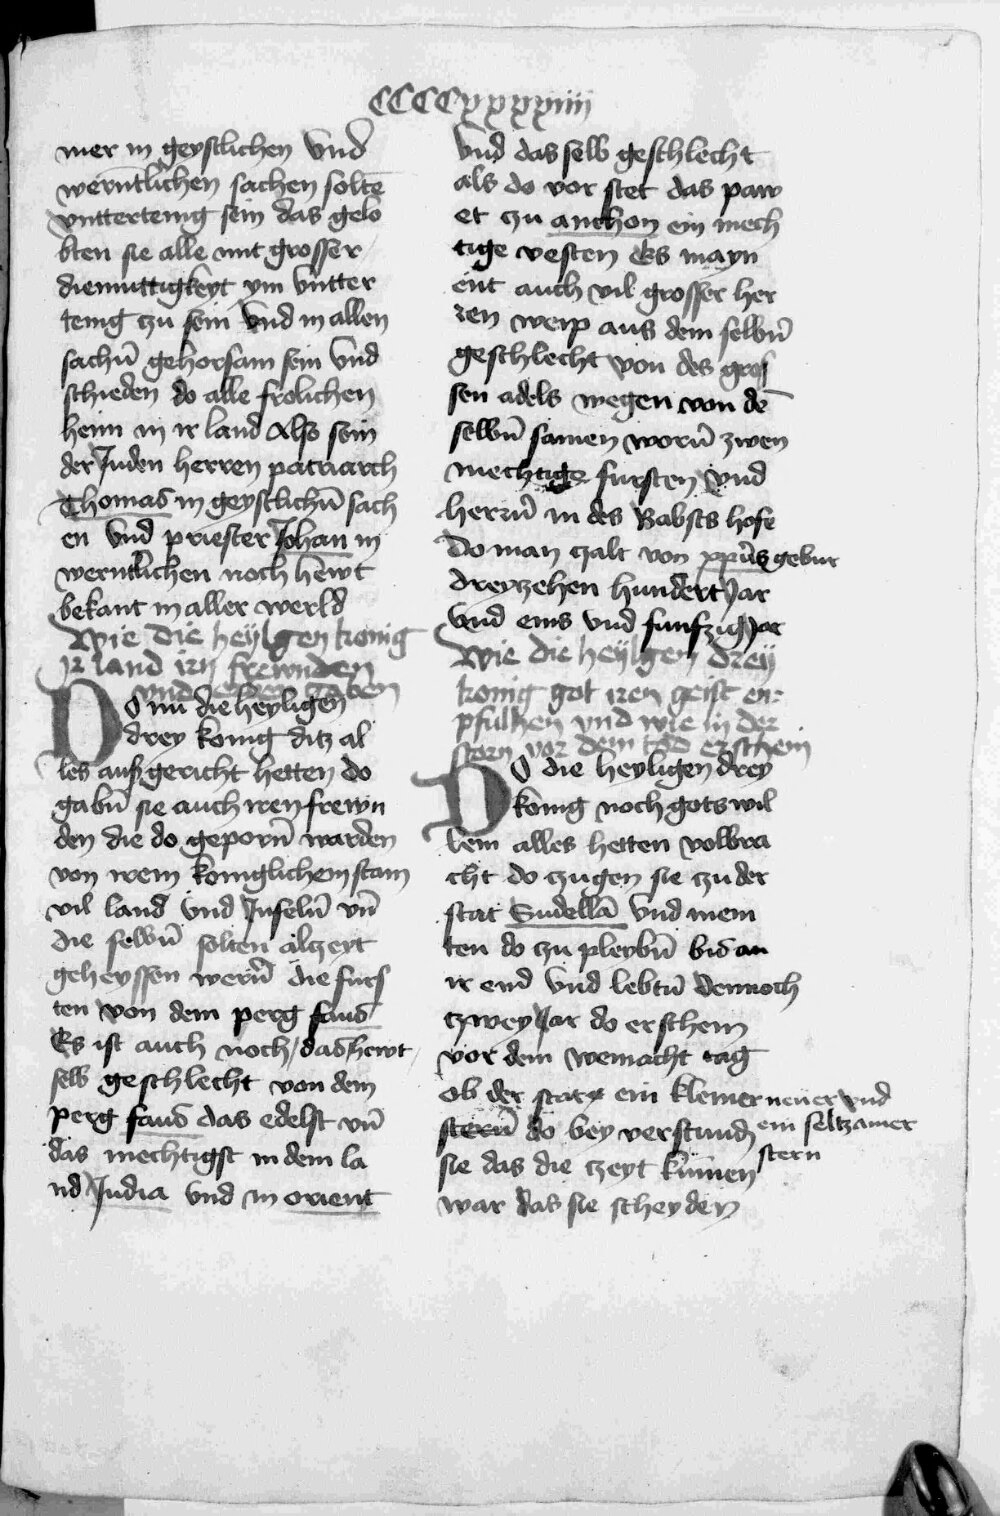 CCCCxxxxiiii
mer in geystlichen Vnd
werntlichen sachen solte̅
vnttertenig sein das gelo
bten sie alle mit grosser
diemuttigkeyt ym vntter
tenig zu sein Vnd in allen
sachn̅ gehorsam sein Vnd
schieden do alle frolichen
heim in ir land Also sein
der Juden herren patriarch
Thomas in geystlichn̅ sach
en Vnd priester Johan in
werntlichen noch hewt
bekant in aller werld
Wie die heylgen konig
ir land irn frewnden
vnd erben gaben
DO nu die heyligen
drey konig ditz al
les auszgericht hetten do
gabn̅ sie auch iren frewn
den die do geporn̅ warden
von irem koniglichem stam
vil land Vnd Inseln̅ vn̅
die selbn̅ solten altzeyt
geheyssen wern̅ die furs
ten von dem perg faus
Es ist auch noch das hewt
selb geschlecht von dem
perg faus das edelst vn̅
das mechtigst in dem la
nd India Vnd in orient
Vnd das selb geschlecht
als do vor stet das paw
et zu anchon ein mech
tige vesten Es mayn
ent auch vil grosser her
ren weip aus dem selbn̅
geschlecht von des gros
sen adels wegen von de̅
selbn̅ samen worn̅ zwen
mechtige fursten Vnd
herrn̅ in des Babsts hofe
Do man zalt von xp̅us gebur
dreyzehen hundert Jar
Vnd eins Vnd funfzig Jar
Wie die heylgen drey
konig got iren geist en
pfulhen vnd wie in der
stern vor dem tod erschein
DO die heyligen drey
konig noch gots wil
lem alles hetten volbra
cht do zugen sie zu der
stat Sudella̅ Vnd mein
ten do zu pleybn̅ bis an
ir end Vnd lebtn̅ dennoch
tzwey Jar do erschein
vor dem weinacht tag
ob der stat ein kleiner newer vnd
stern̅ do bey verstund ein seltzamer
stern
sie das die tzeyt kumen
war das sie scheyden